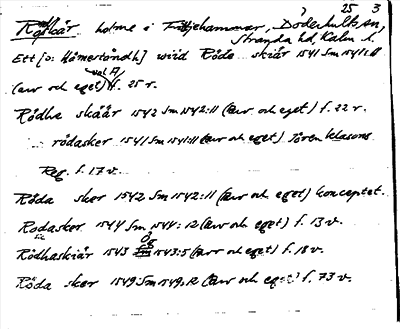 25 3
Rödskär holme i Fittjehammar, Döderhults sn,
Stranda hd, Kalm. l.
Ett [o: Hömertöndh] wiid Röda skiär 1541 Sm 1541:11
(arv och eget) f. 25 r.
Rödha skäär 1542 Sm 1542:11 (arv och eget) f. 22 r.
rödasker 1541 Sm 1541:11 (arv och eget) Jören Klasons
Reg. f. 17 v.
Röda sker 1542 Sm 1542:11 (arv och eget) konceptet.
Rodasker 1544 Sm 1544:12 (arv och eget) f. 13 v.
Rödhaskiär 1543 Ög 1543:5 (arv och eget) f. 18 v.
Röda sker 1549 Sm 1549:12 (arv och eget) f. 73 v.